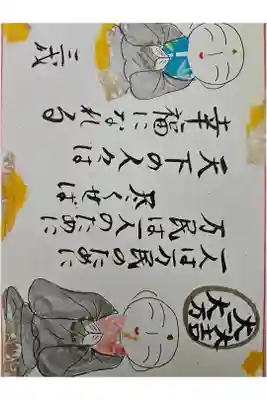 大一大万大吉
一人は万民のために
万民は一人のために
尽くせば
天下の人々は
幸福になれる
三成